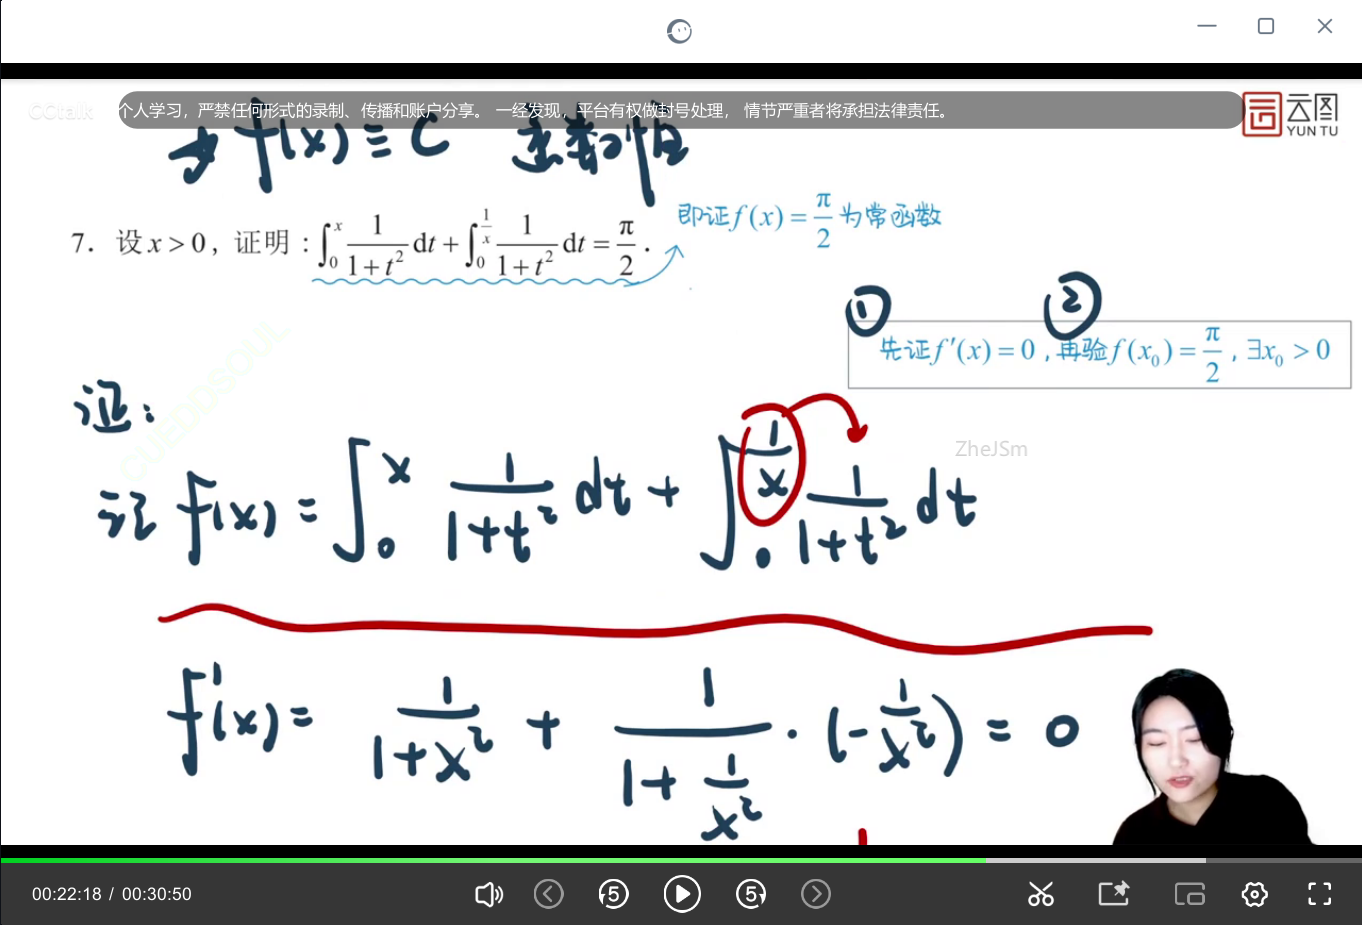 CCtalk 个人学习，严禁任何形式的录制、传播和账户分享。 一经发现，平台有权做封号处理， 情节严重者将承担法律责任。
云图
YUN TU
→ f(x) ≡ C
7. 设 x > 0, 证明 : ∫₀ˣ 1/(1+t²) dt + ∫₀^(1/x) 1/(1+t²) dt = π/2 .
即证 f(x) = π/2 为常函数
① ②
先证 f′(x) = 0 , 再验 f(x₀) = π/2 , ∃x₀ > 0
CUEDDSOUL
证:
ZheJSm
记 f(x) = ∫₀ˣ 1/(1+t²) dt + ∫₀^(1/x) 1/(1+t²) dt
f′(x) = 1/(1+x²) + 1/(1+1/x²) · (-1/x²) = 0
00:22:18 / 00:30:50
5 5